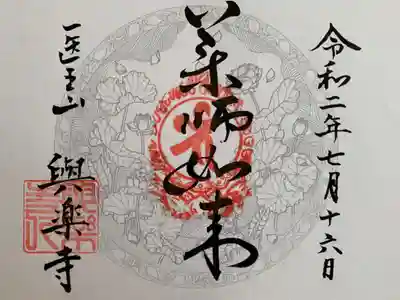 令和二年七月十六日
薬師如来
医王山 興楽寺